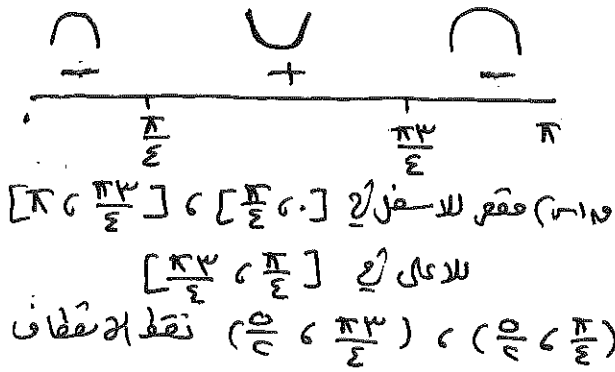 − + −
٠ π/٤ ٣π/٤ π
ق(س) مقعر للاسفل ع [٠ ، π/٤] ، [٣π/٤ ، π]
للاعلى ع [π/٤ ، ٣π/٤]
(π/٤ ، ٥/٢) ، (٣π/٤ ، ٥/٢) نقط انعطاف